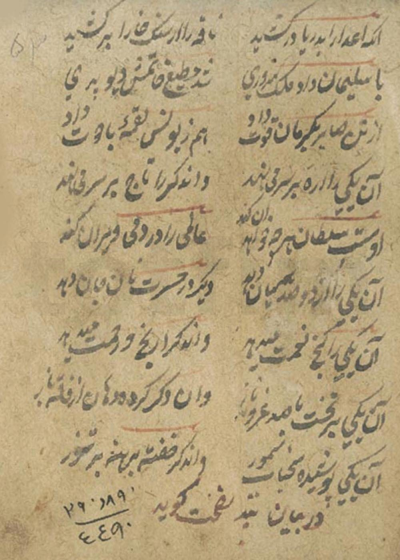 آنکه اعدا را بدریا درکشید ناقه را از سنگ خارا برکشید
با سلیمان داد ملک و سروری شد مطیع خاتمش دیو و پری
از تن صابر بکرمان قوت داد هم ز یونس لقمهٔ با حوت داد
آن یکی را اره بر سر می نهد واندکر را تاج بر سر می نهد
اوست سلطان هرچه خواهد آن کند عالمی را در دمی ویران کند
آن یکی را زر دو صد همیان دهد دیکر در حسرت نان جان دهد
آن یکی را کنج نعمت میدهد واندکر را رنج و زحمت میدهد
آن یکی بر تخت با صد عز و ناز وان دکر کرده دهان از فاقه باز
آن یکی پوشیده سنجاب و سمور واندکر خفته برهنه بر تنور
در بیان پند نصیحت کوید
٤٤٩٠